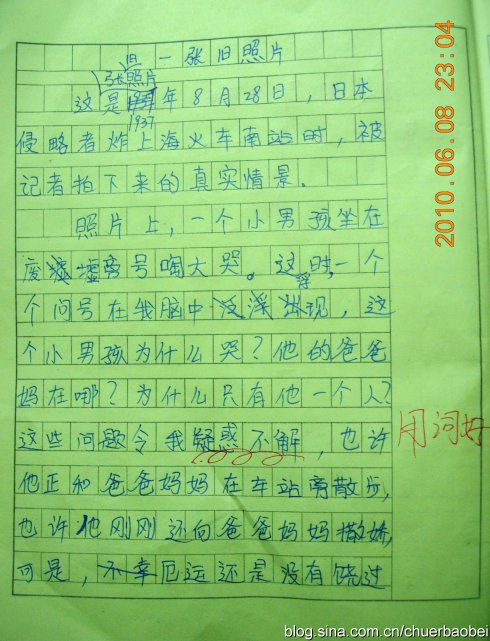 一张旧照片
旧
张照片
这是年8月28日，日本
1937
侵略者炸上海火车南站时，被
记者拍下来的真实情景。
照片上，一个小男孩坐在
废墟旁号啕大哭。这时，一个
浮
个问号在我脑中出现，这
个小男孩为什么哭？他的爸爸
妈在哪？为什么只有他一个人？
这些问题令我疑惑不解，也许
用词好
他正和爸爸妈妈在车站旁散步，
也许他刚刚还向爸爸妈妈撒娇，
可是，不幸厄运还是没有饶过
2010.06.08 23:04
blog.sina.com.cn/chuerbaobei